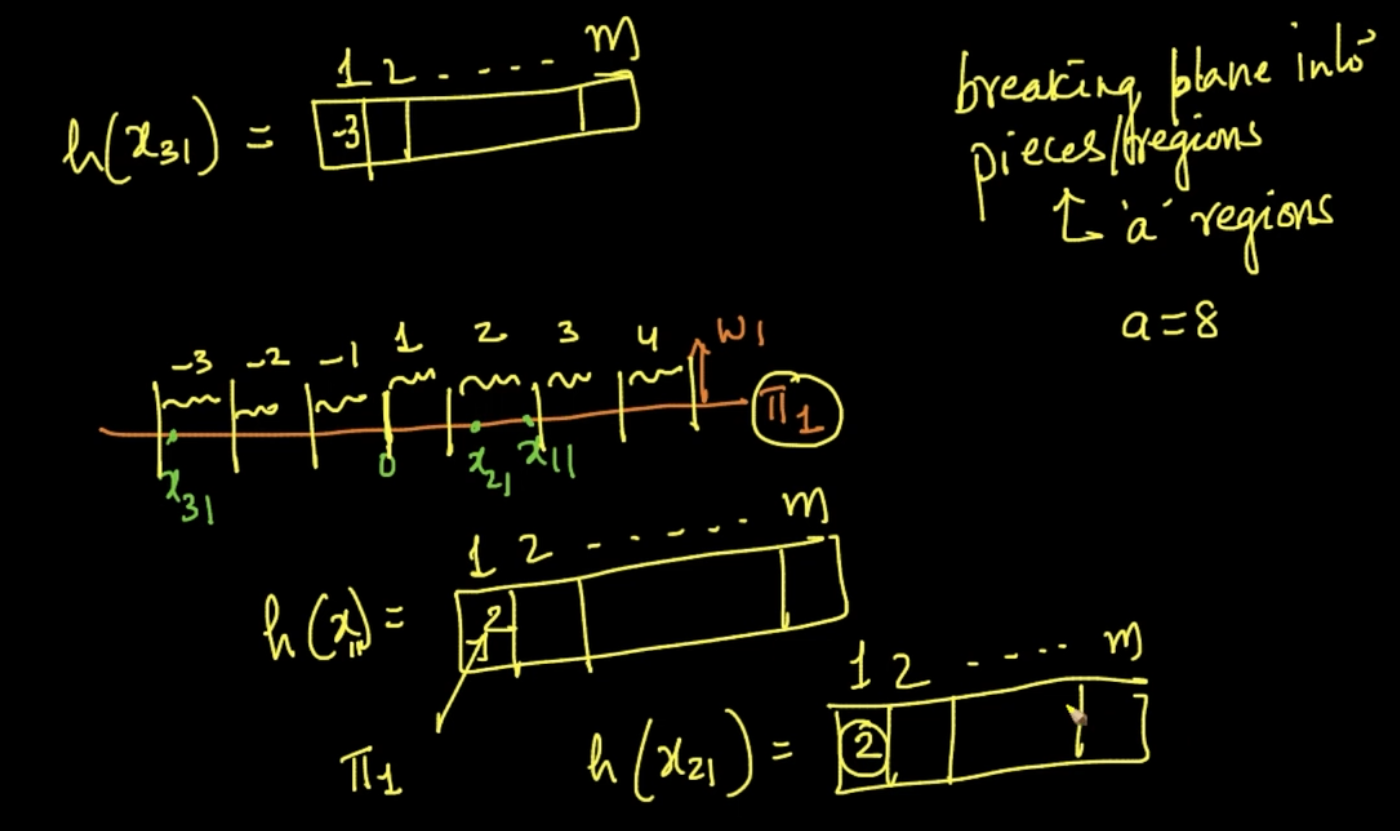 1 2 . - - - - m
h(x₃₁) = -3
breaking plane into
pieces/regions
↳ 'a' regions
a=8
-3 -2 -1 1 2 3 4 W₁
π₁
x₃₁ 0 x₂₁ x₁₁
1 2 - - - - - - m
h(x₁₁) = 2
π₁
1 2 - - - - - m
h(x₂₁) = 2